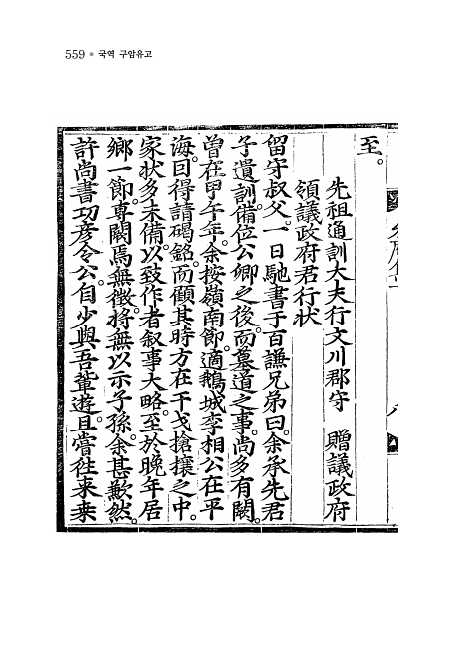 559 ● 국역 구암유고
至。
先祖通訓大夫行文川郡守 贈議政府
領議政府君行狀
留守叔父。一日馳書于百謙兄弟曰。余承先君
子遺訓。備位公卿之後。而墓道之事。尚多有闕。
曾在甲午年。余按嶺南節。適鵝城李相公在平
海。曰得請碣銘。而顧其時方在干戈搶攘之中。
家狀多未備。以致作者叙事大略。至於晚年居
鄉一節。專闕焉無徵。將無以示子孫。余甚歎然。
許尚書功彦令公。自少與吾輩遊。且嘗往来来